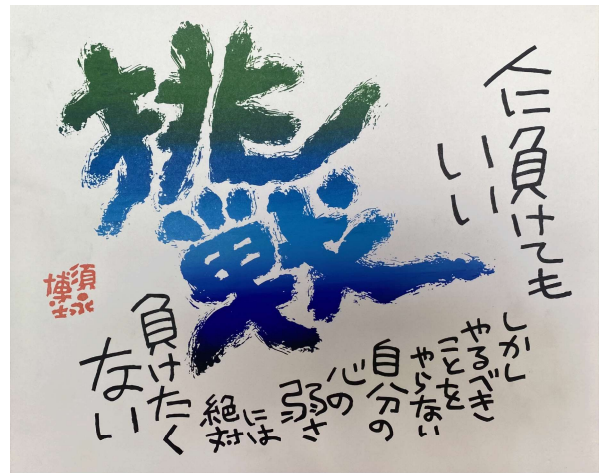 挑戦
人に負けても
いい
しかし
やるべき
ことを
やらない
自分の
心の
弱さ
には
絶対
負けたく
ない
須永
博士